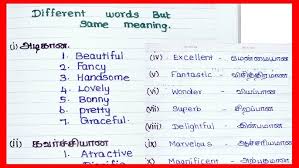 Different words But
Same meaning.
(i) அழகான.
1. Beautiful
2. Fancy
3. Handsome
4. Lovely
5. Bonny
6. pretty
7. Graceful.
(ii) கவர்ச்சியான
1. Atractive
(iv) Excellent -
(v) Fantastic - விசித்திரமான
(vi) Wonder - வியப்பான
(vii) Superb - சிறப்பான
(viii) Delightful - இன்பமான
ix) Marvelous - ஆச்சரியமான
x) Magnificent -